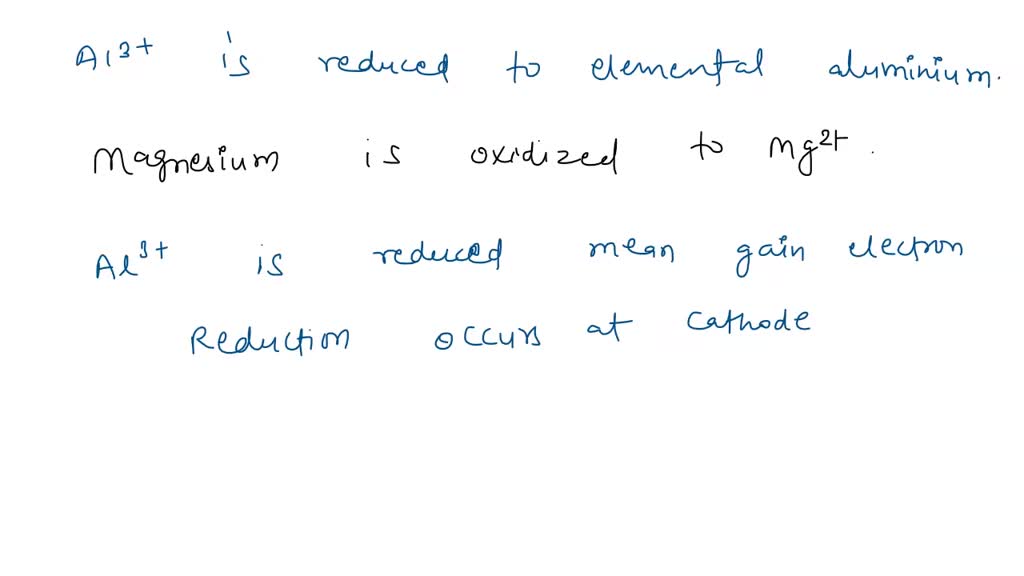 Al3+ is reduced to elemental aluminium.
Magnesium is oxidized to Mg2+.
Al3+ is reduced mean gain electron
Reduction occurs at cathode